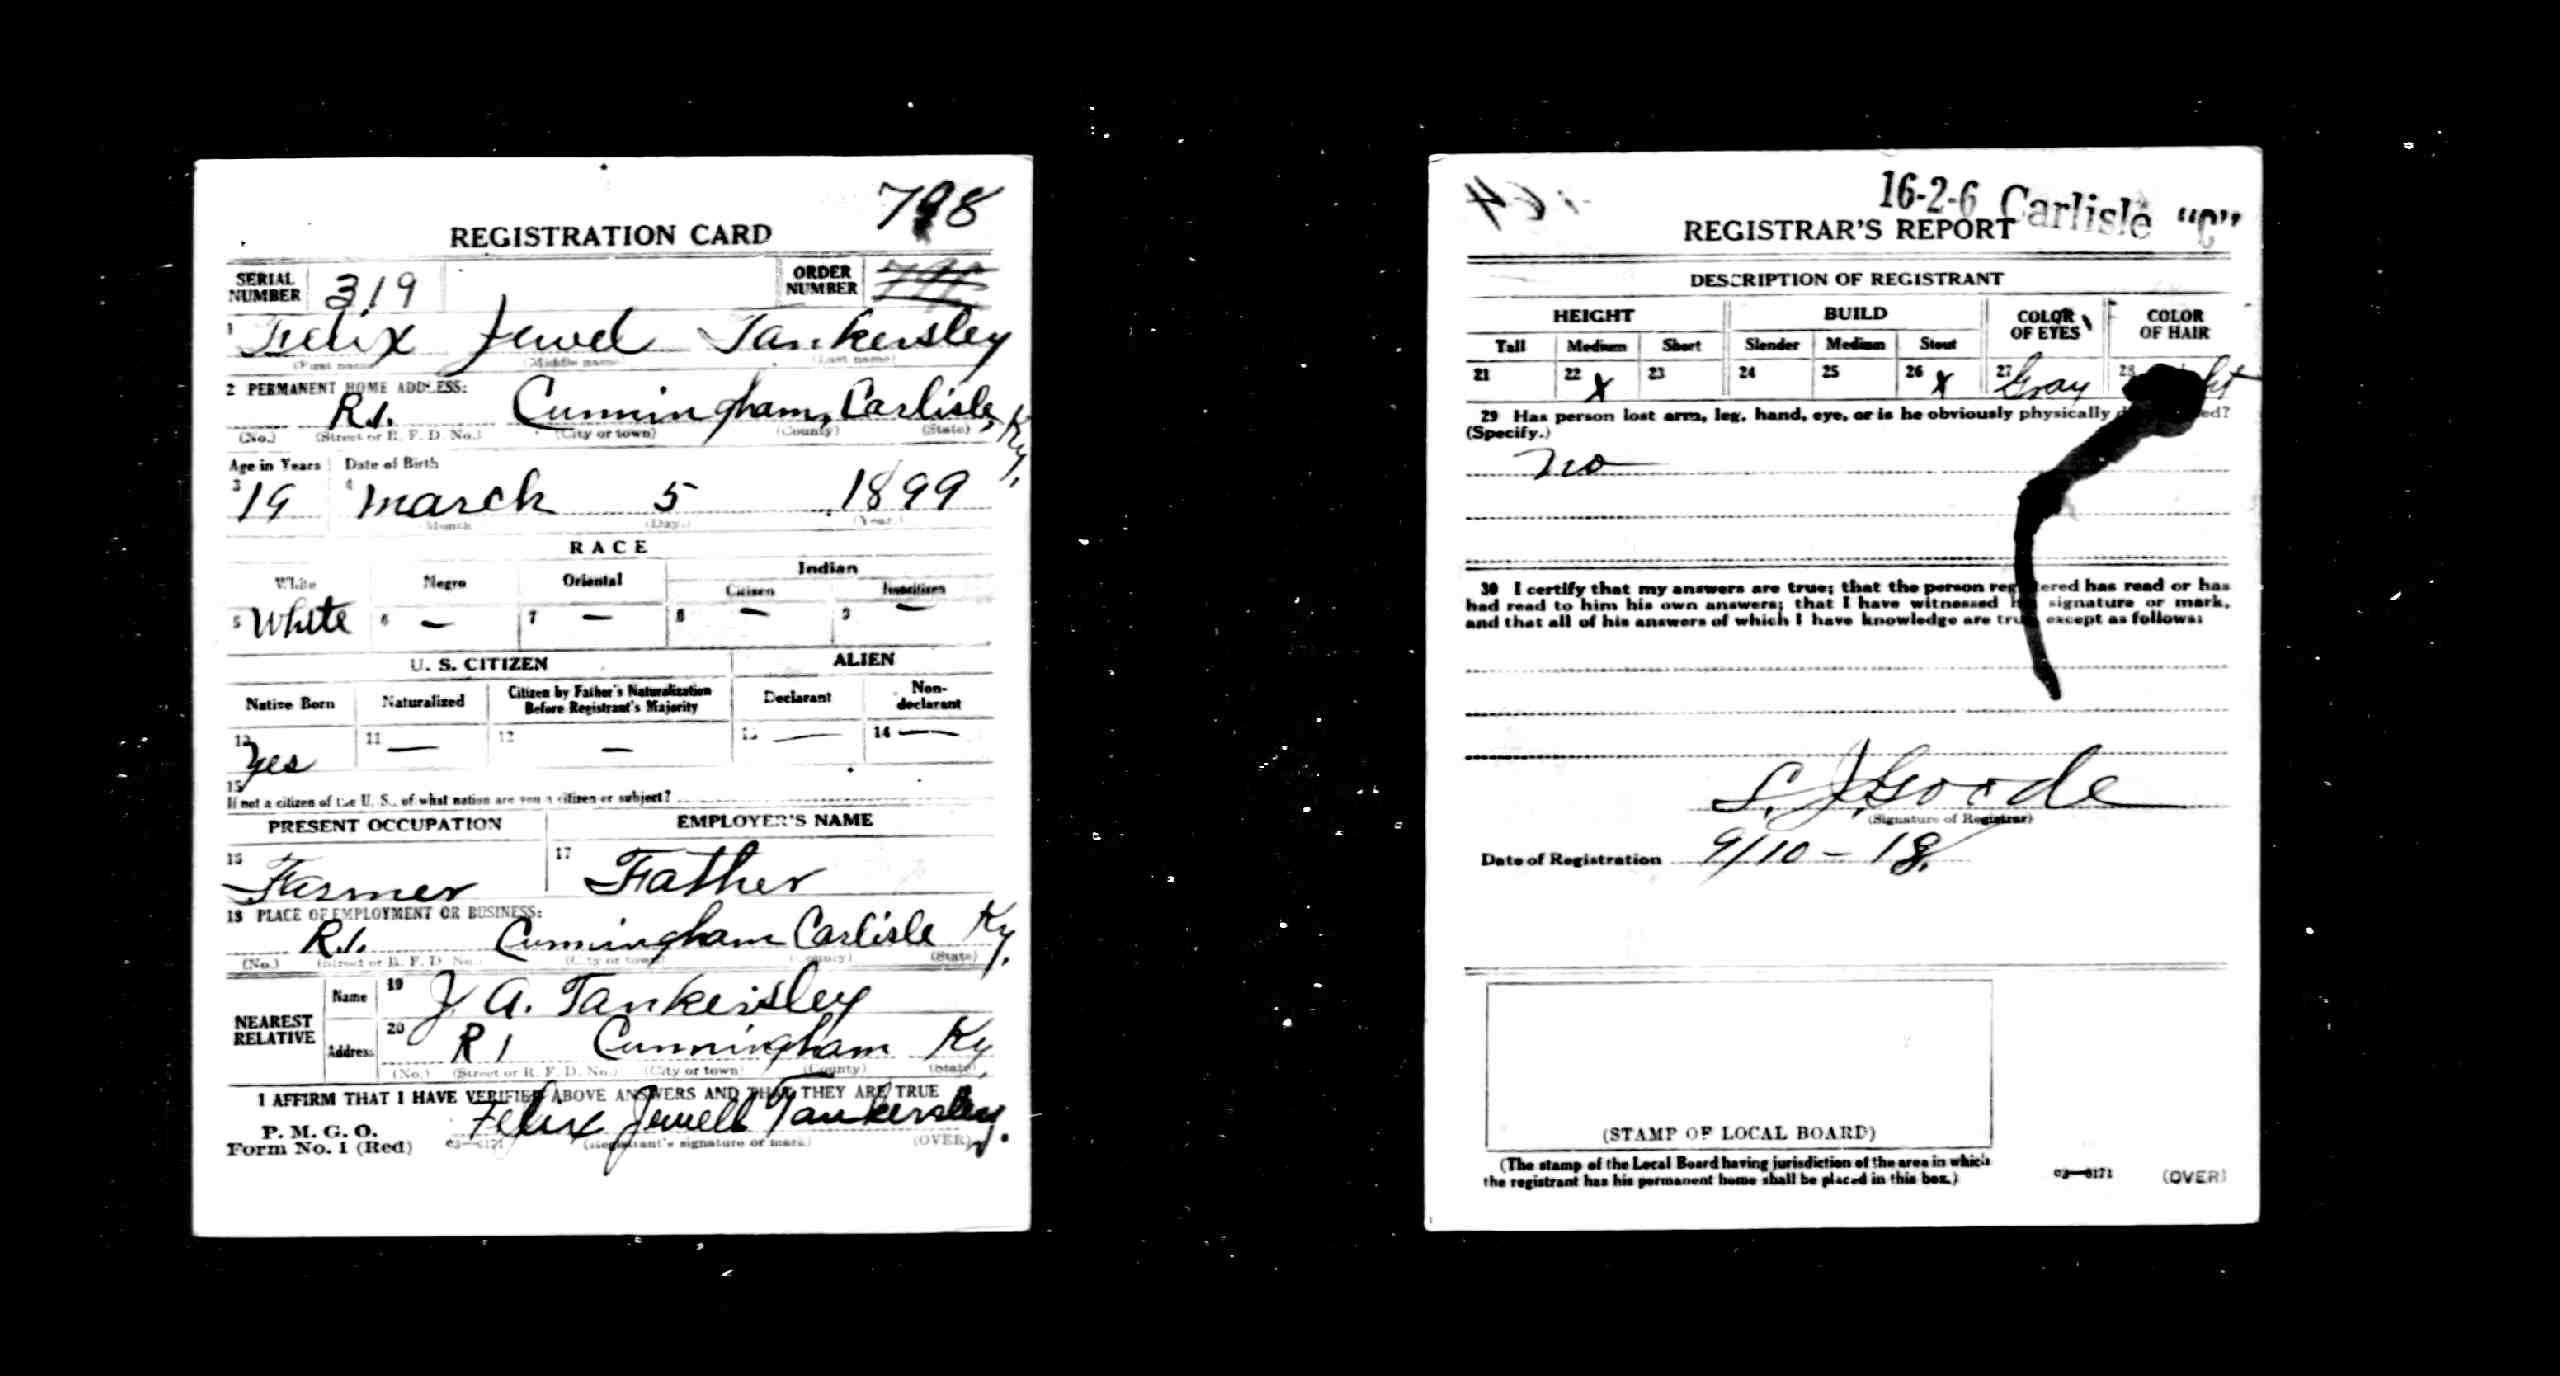 798
REGISTRATION CARD
SERIAL NUMBER 319 ORDER NUMBER
1 Felix Jewel Tankersley
(First name) (Middle name) (Last name)
2 PERMANENT HOME ADDRESS:
R.1. Cunningham, Carlisle, Ky.
(No.) (Street or R. F. D. No.) (City or town) (County) (State)
Age in Years Date of Birth
3 19 4 March 5 1899
Month (Day) (Year)
RACE
White Negro Oriental Indian
Citizen Noncitizen
5 White 6 — 7 — 8 — 9 —
U. S. CITIZEN ALIEN
Native Born Naturalized Citizen by Father's Naturalization Before Registrant's Majority Declarant Non-declarant
10 Yes 11 — 12 — 13 — 14 —
15
If not a citizen of the U. S., of what nation are you a citizen or subject?
PRESENT OCCUPATION EMPLOYER'S NAME
16 Farmer 17 Father
18 PLACE OF EMPLOYMENT OR BUSINESS:
R.1. Cunningham Carlisle Ky.
(No.) (Street or R. F. D. No.) (City or town) (County) (State)
NEAREST RELATIVE
Name 19 J A. Tankersley
Address 20 R 1 Cunningham Ky
(No.) (Street or R. F. D. No.) (City or town) (County) (State)
I AFFIRM THAT I HAVE VERIFIED ABOVE ANSWERS AND THAT THEY ARE TRUE
P. M. G. O.
Form No. 1 (Red) Felix Jewell Tankersley.
03—6171 (Registrant's signature or mark) (OVER)
16-2-6 Carlisle "C"
REGISTRAR'S REPORT
DESCRIPTION OF REGISTRANT
HEIGHT BUILD COLOR OF EYES COLOR OF HAIR
Tall Medium Short Slender Medium Stout
21 22 x 23 24 25 26 x 27 Gray 28
29 Has person lost arm, leg, hand, eye, or is he obviously physically
(Specify.)
no
30 I certify that my answers are true; that the person registered has read or has
had read to him his own answers; that I have witnessed his signature or mark,
and that all of his answers of which I have knowledge are true, except as follows:
S. J. Goode
(Signature of Registrar)
Date of Registration 9/10-18.
(STAMP OF LOCAL BOARD)
(The stamp of the Local Board having jurisdiction of the area in which
the registrant has his permanent home shall be placed in this box.)
03—6171 (OVER)